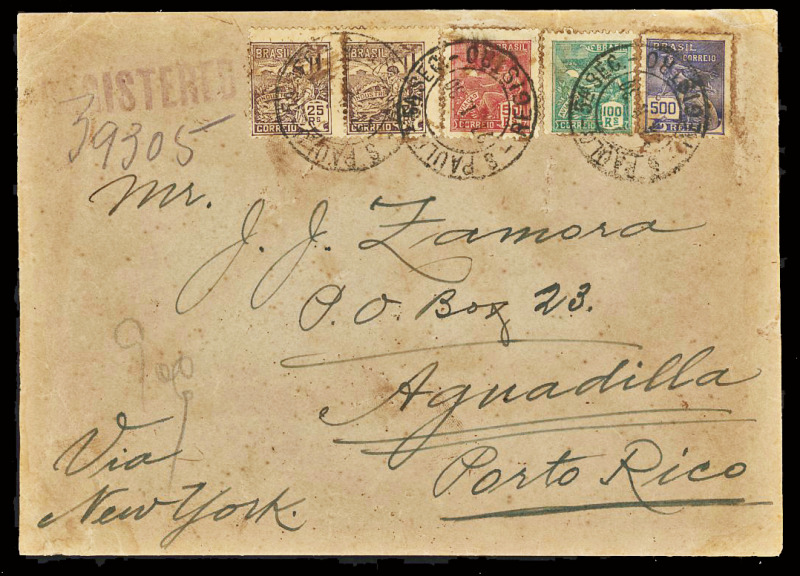 BRASIL
25 Rs
CORREIO
BRASIL
CORREIO
BRASIL
CORREIO
BRASIL
100 Rs
CORREIO
BRASIL
CORREIO
500
REIS
REGISTRO
S PAULO
REGISTERED
39305
Mr.
J. J. Zamora
P. O Box 23.
Aguadilla
Porto Rico
Via
New York.